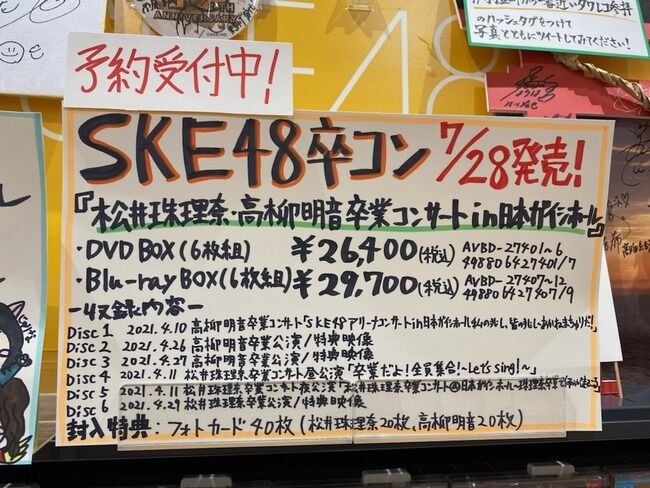 ANNIVERSARY
のハッシュタグをつけて
写真とともにツイートしてみてください!
予約受付中!
SKE48卒コン 7/28発売!
『松井珠理奈・高柳明音卒業コンサートin日本ガイシホール』
・DVD BOX(6枚組) ¥26,400(税込) AVBD-27401~6
4988064274017
・Blu-ray BOX(6枚組) ¥29,700(税込) AVBD-27407~12
4988064274079
-収録内容-
Disc1 2021.4.10 高柳明音卒業コンサート「SKE48アリーナコンサートin日本ガイシホール
Disc2 2021.4.26 高柳明音卒業公演/特典映像
Disc3 2021.4.27 高柳明音卒業公演/特典映像
Disc4 2021.4.11 松井珠理奈卒業コンサート昼公演「卒業だよ!全員集合!~Let's sing!~」
Disc5 2021.4.11 松井珠理奈卒業コンサート夜公演「松井珠理奈卒業コンサート@日本ガイシホール~珠理奈卒業で
Disc6 2021.4.29 松井珠理奈卒業公演/特典映像
封入特典:フォトカード40枚(松井珠理奈20枚、高柳明音20枚)